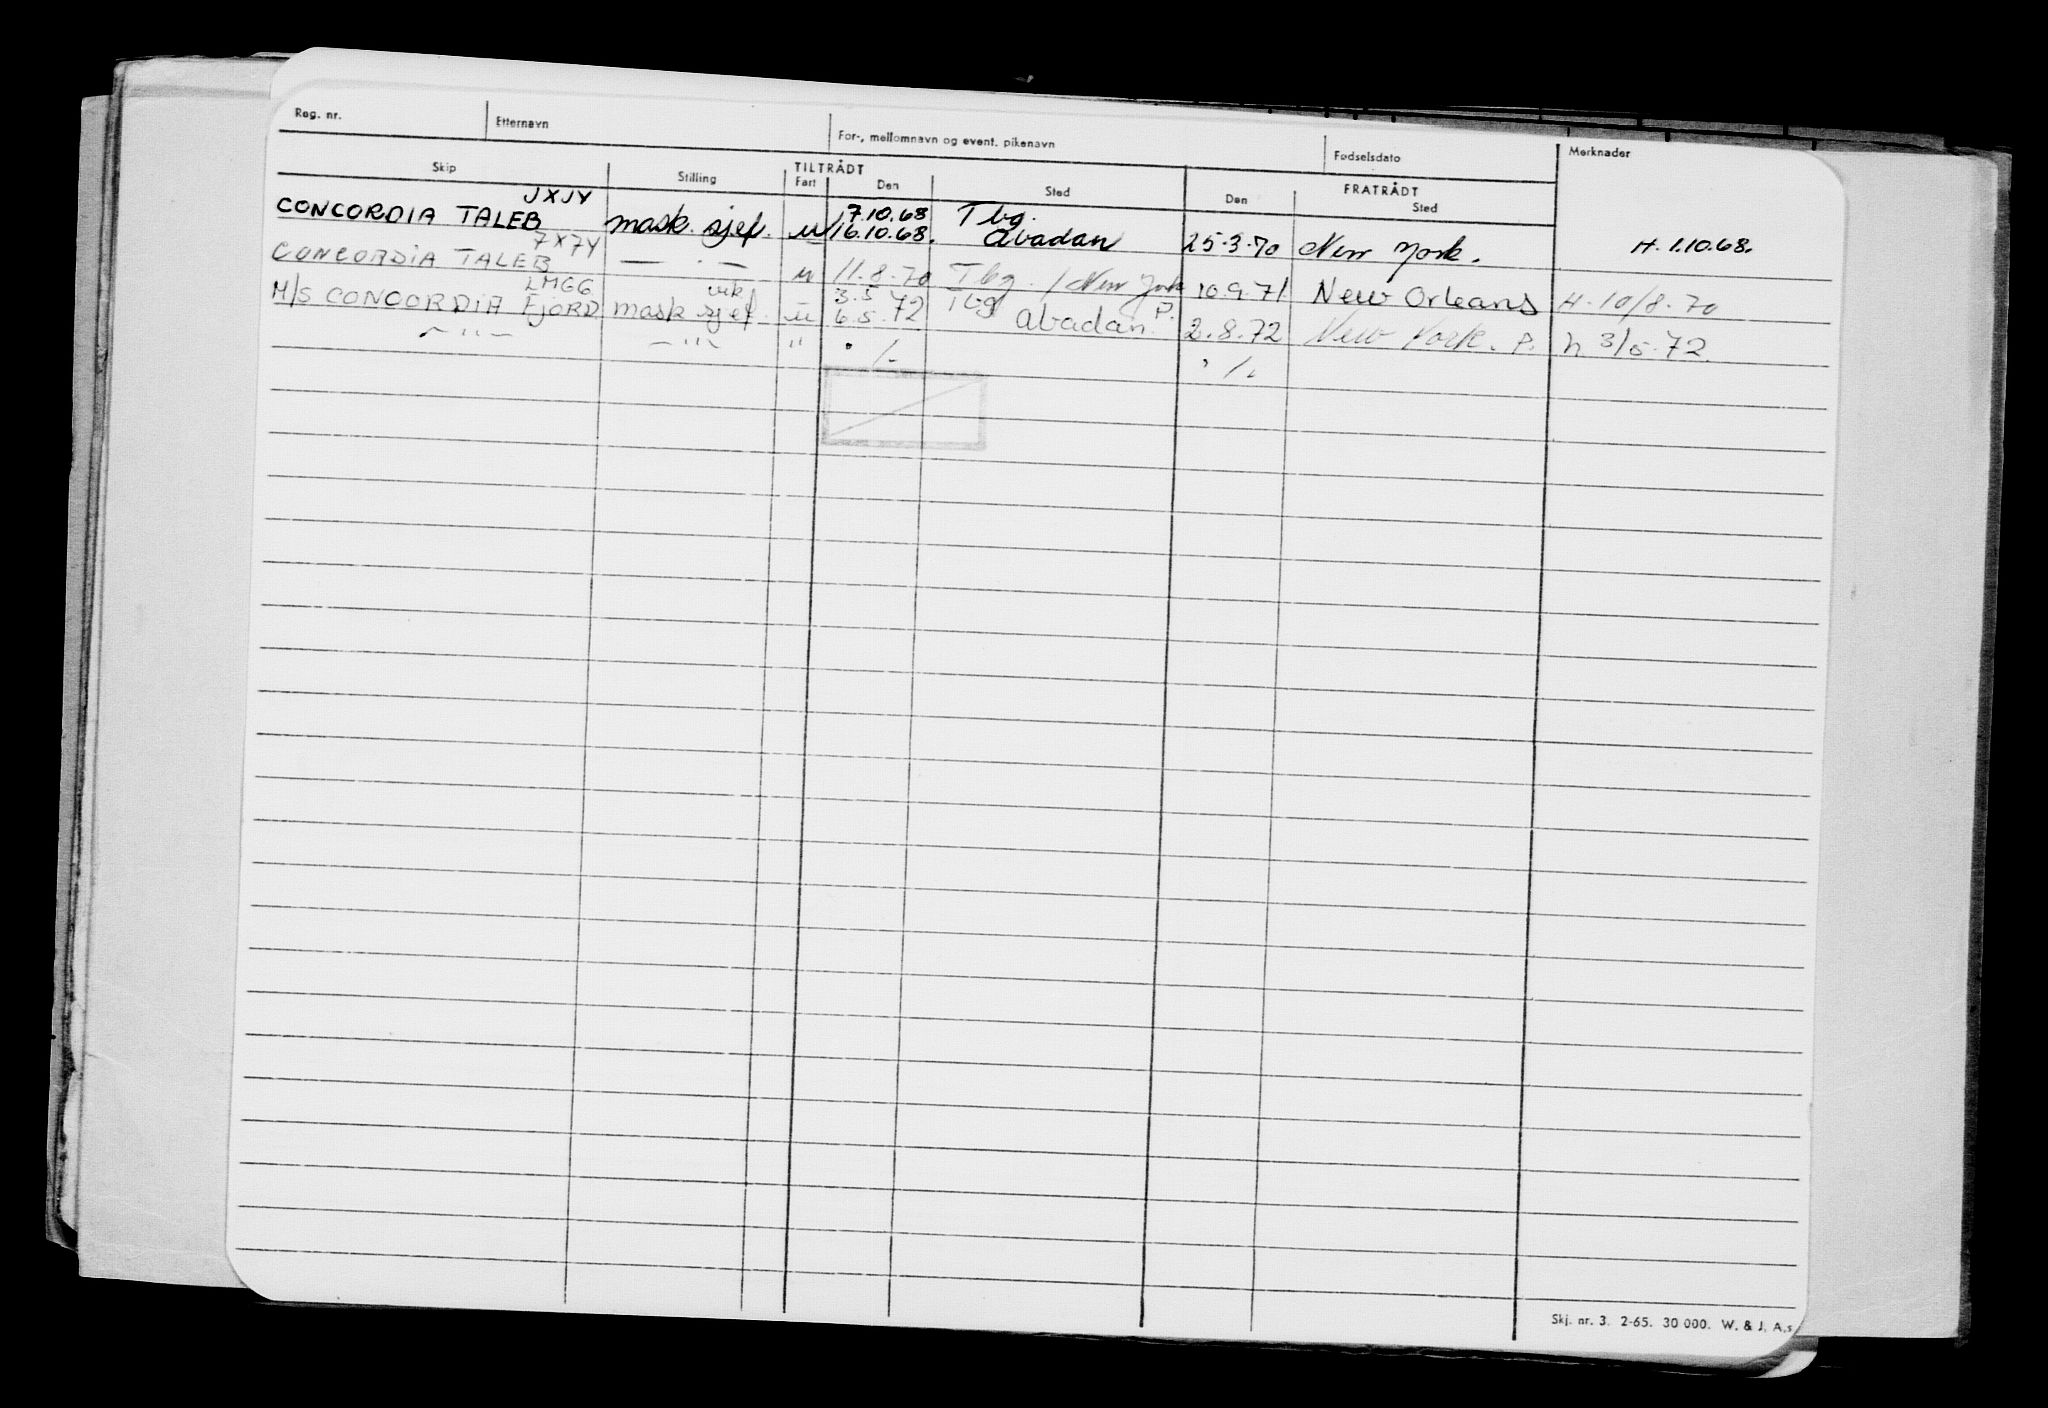 Reg. nr. Etternavn For-, mellomnavn og event. pikenavn Fødselsdato Merknader
Skip Stilling TILTRÅDT Fart Den Sted FRATRÅDT Den Sted
JXJY
CONCORDIA TALEB mask. sjef. u 7.10.68 16.10.68. Tbg. Abadan 25.3.70 New York. H. 1.10.68.
7X7Y
CONCORDIA TALEB — . — u 11.8.70 Tbg. / New York 10.9.71 New Orleans H. 10/8.70
LMGG
M/S CONCORDIA FJORD mask sjef vik. u 3.5 6.5.72 Tbg Abadan. P. 2.8.72 New York. P. h 3/5.72.
— " — — " — " · /- · /-
Skj. nr. 3. 2-65. 30 000. W. & J. A.s